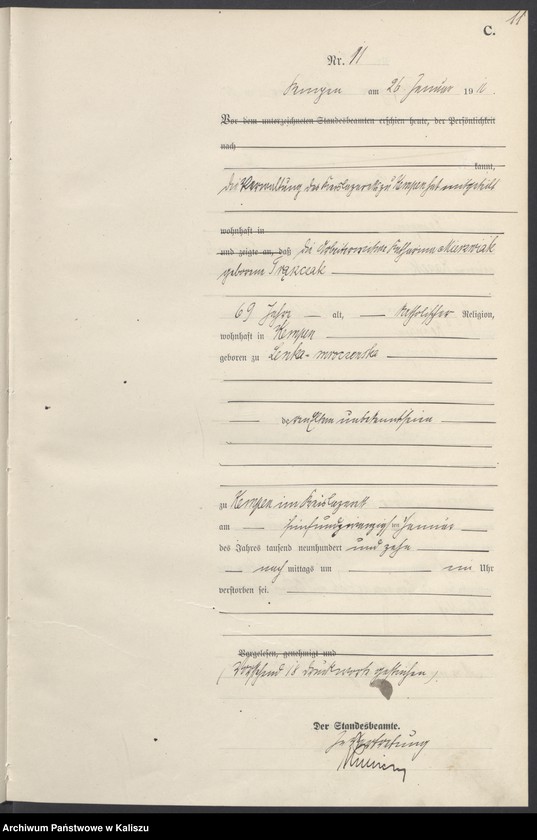 11
C.
Nr. 11
Kempen am 26 Januar 1910.
Vor dem unterzeichneten Standesbeamten erschien heute, der Persönlichkeit
nach
kannt,
die Verwaltung des Kreislazaretts zu Kempen hat mitgeteilt
wohnhaft in
und zeigte an, daß die Arbeiterwitwe Katharina
geborene
69 Jahre alt, katholischer Religion,
wohnhaft in Kempen
geboren zu Lenka-mroczenska
deren Eltern unbekannt seien
zu Kempen im Kreislazarett
am fünfundzwanzigsten Januar
des Jahres tausend neunhundert und zehn
nach mittags um ein Uhr
verstorben sei.
Vorgelesen, genehmigt und
(Vorstehend 18 Druckworte gestrichen).
Der Standesbeamte.
In Vertretung
Archiwum Państwowe w Kaliszu